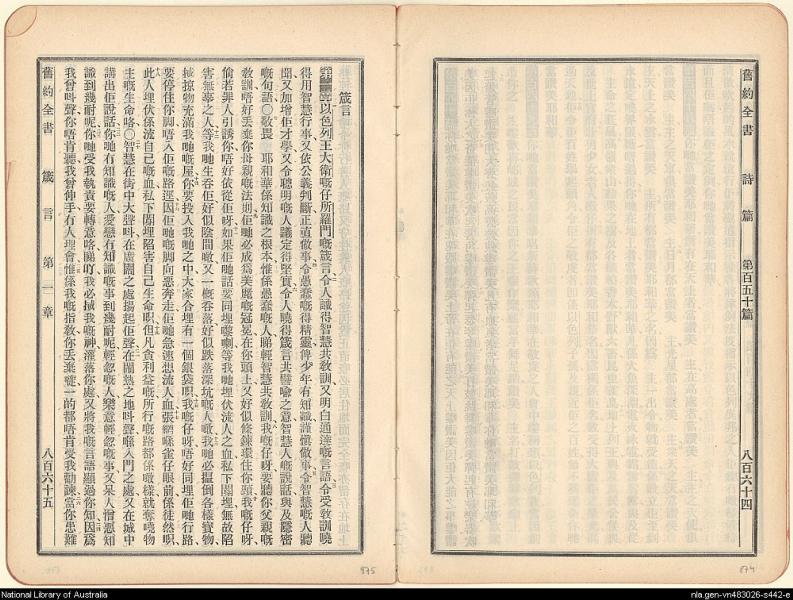 舊約全書 詩篇 第百五十篇 八百六十四
箴言
以色列王大衛嘅仔所羅門嘅箴言令人識得智慧共敎訓又明白通達嘅言語令受敎訓曉
得用智慧行事又依公義判斷正直做事令愚蠢嘅得精靈俾少年有知識謹愼做事令智慧嘅人聽
聞又加增佢才學又令聰明嘅人議定得堅實令人曉得箴言共譬喻之意智慧人嘅說話與及隱密
嘅句語〇敬畏 耶和華係知識之根本惟係愚蠢嘅人睇輕智慧共敎訓我嘅仔呀要聽你父親嘅
敎訓唔好丢棄你母親嘅法則佢哋必成爲美麗嘅冠冕在你頭上又好似條鍊環住你頸我嘅仔呀
倘若罪人引誘你唔好依從佢呀如果佢哋話要同埋嚟喇等我哋埋伏流人之血私下關埋無故陷
害無辜之人等我哋生吞佢好似陰間噉又一概吞落好似跌落深坑嘅人噉我哋必搵倒各樣寶物
掠物充滿我哋嘅屋你要投入我哋之中大家合埋有一個銀袋呮我嘅仔呀唔好同埋佢哋行路
要停住你脚唔入佢嘅路逕因佢哋嘅脚向惡奔走佢哋急速想流人血張網喺雀仔眼前係徒然呮
此人埋伏係流自己嘅血私下關埋陷害自己生命呮但凡貪利益嘅所行嘅路都係噉樣就奪曉物
主嘅生命咯〇智慧在街中大聲呌在虛闊之處揚起佢聲在鬧熱之地呌聲喺入門之處又在城中
講出佢說話你哋冇知識嘅人愛戀冇知識嘅事到幾耐呢輕忽嘅人樂意輕忽嘅事又呆人憎惡知
識到幾耐呢你哋受我執責要轉意咯睇吓我必我嘅神灌落你處又將我嘅言語顯過你知因爲
我曾呌聲你唔肯聽我曾伸手冇人理會惟係我嘅指敎你丢棄一的都唔肯受我勸諫當你患難
舊約全書 箴言 第一章 八百六十五
875
874
National Library of Australia
nla.gen-vn483026-s442-e